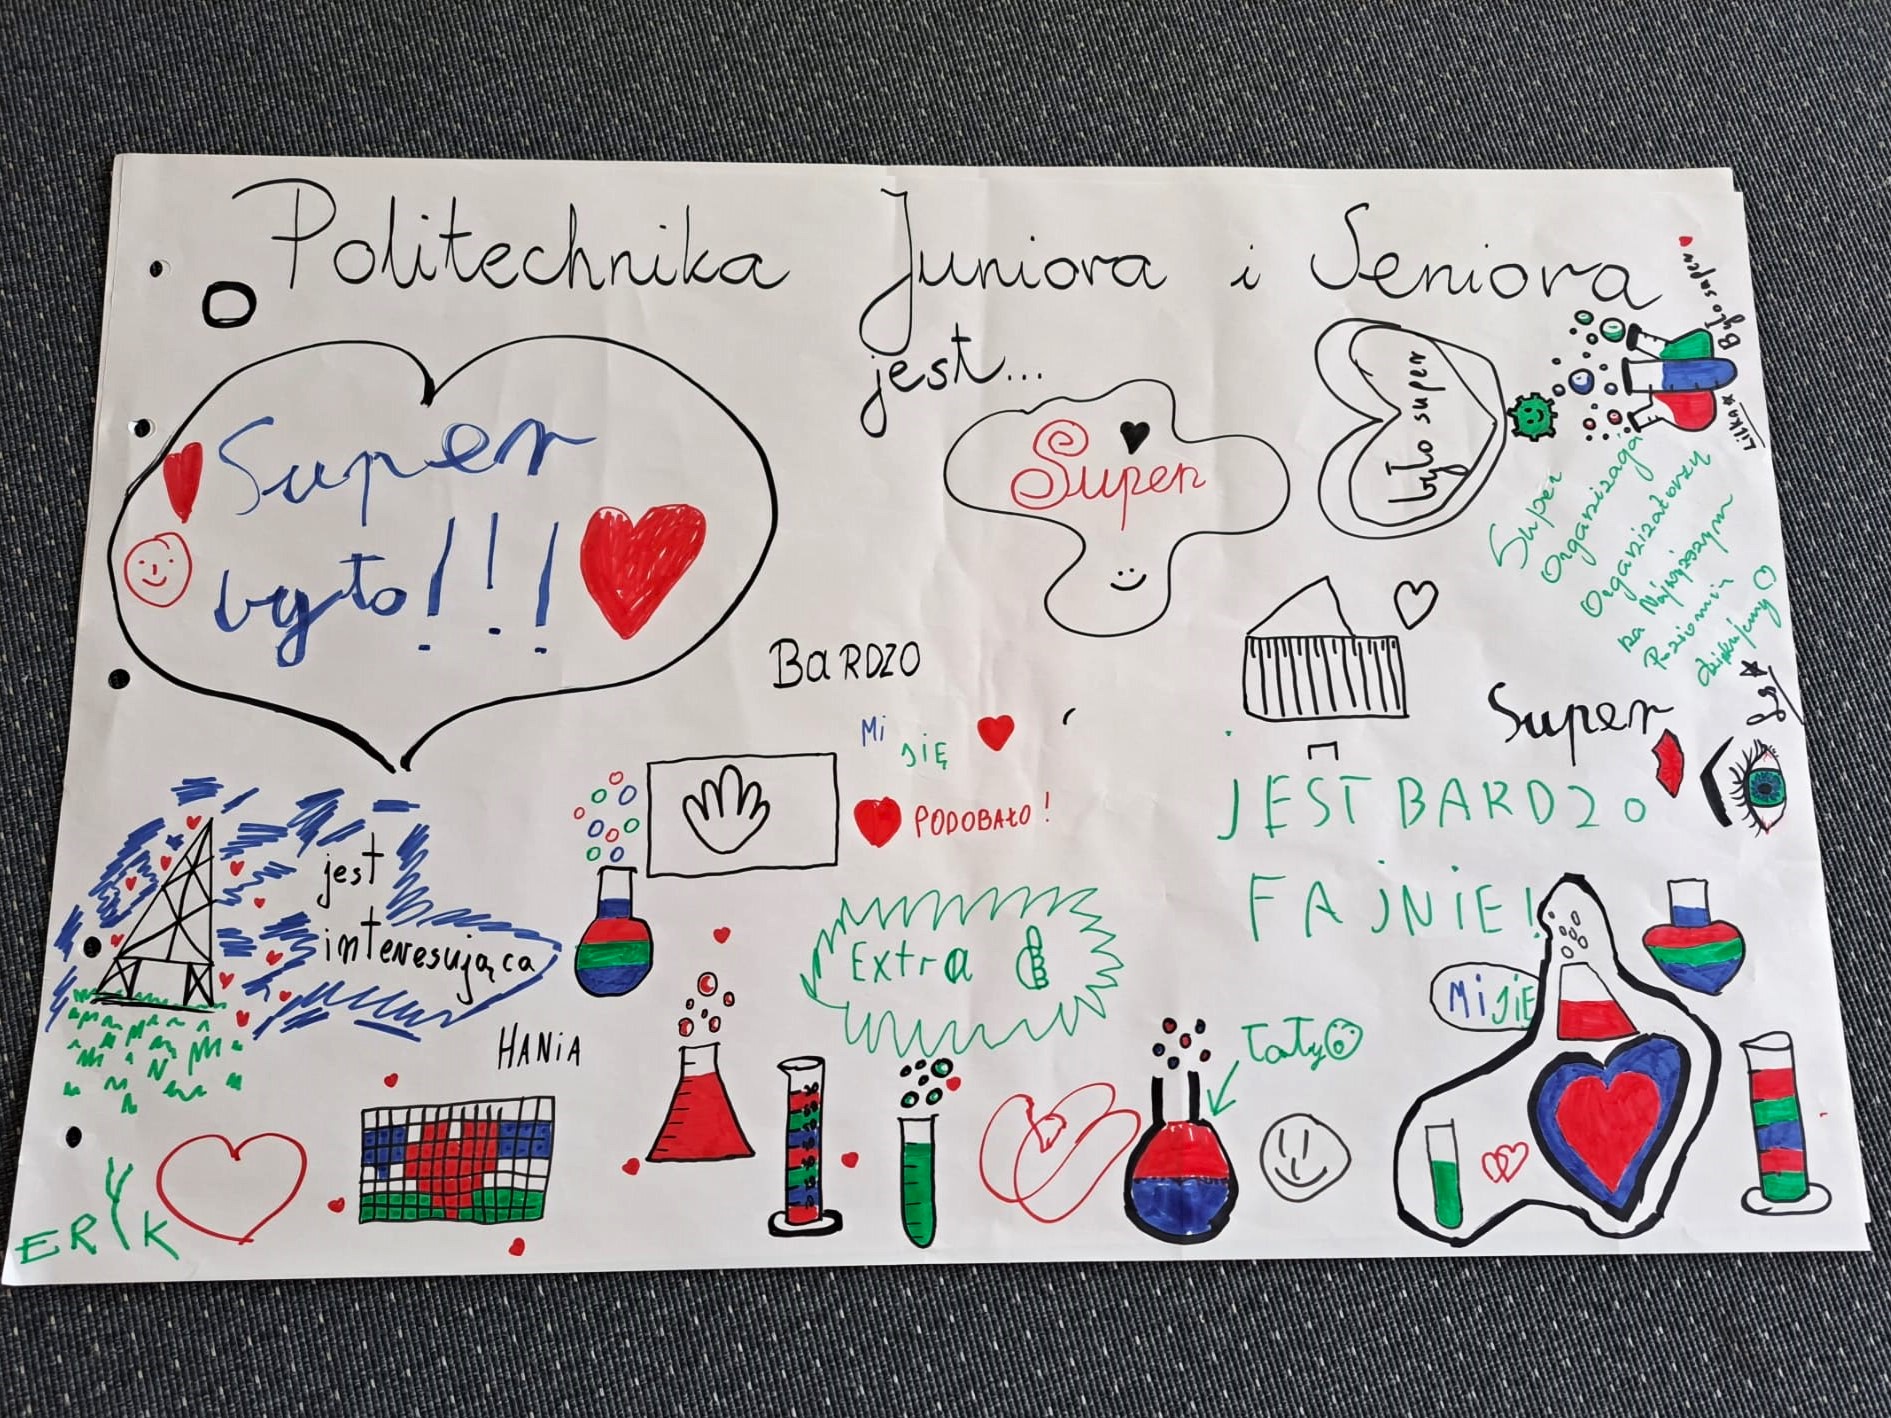 Politechnika Juniora i Seniora
jest...
Super
było!!!
Super
było super
Było super
Lilka
Super
Organizacja
Organizatorzy
na Najwyższym
Poziomie
dziękujemy
BARDZO
Mi
SIĘ
PODOBAŁO!
Super
JEST BARDZO
FAJNIE!
jest
interesująca
Extra
HANIA
Mi SIĘ
ERYK